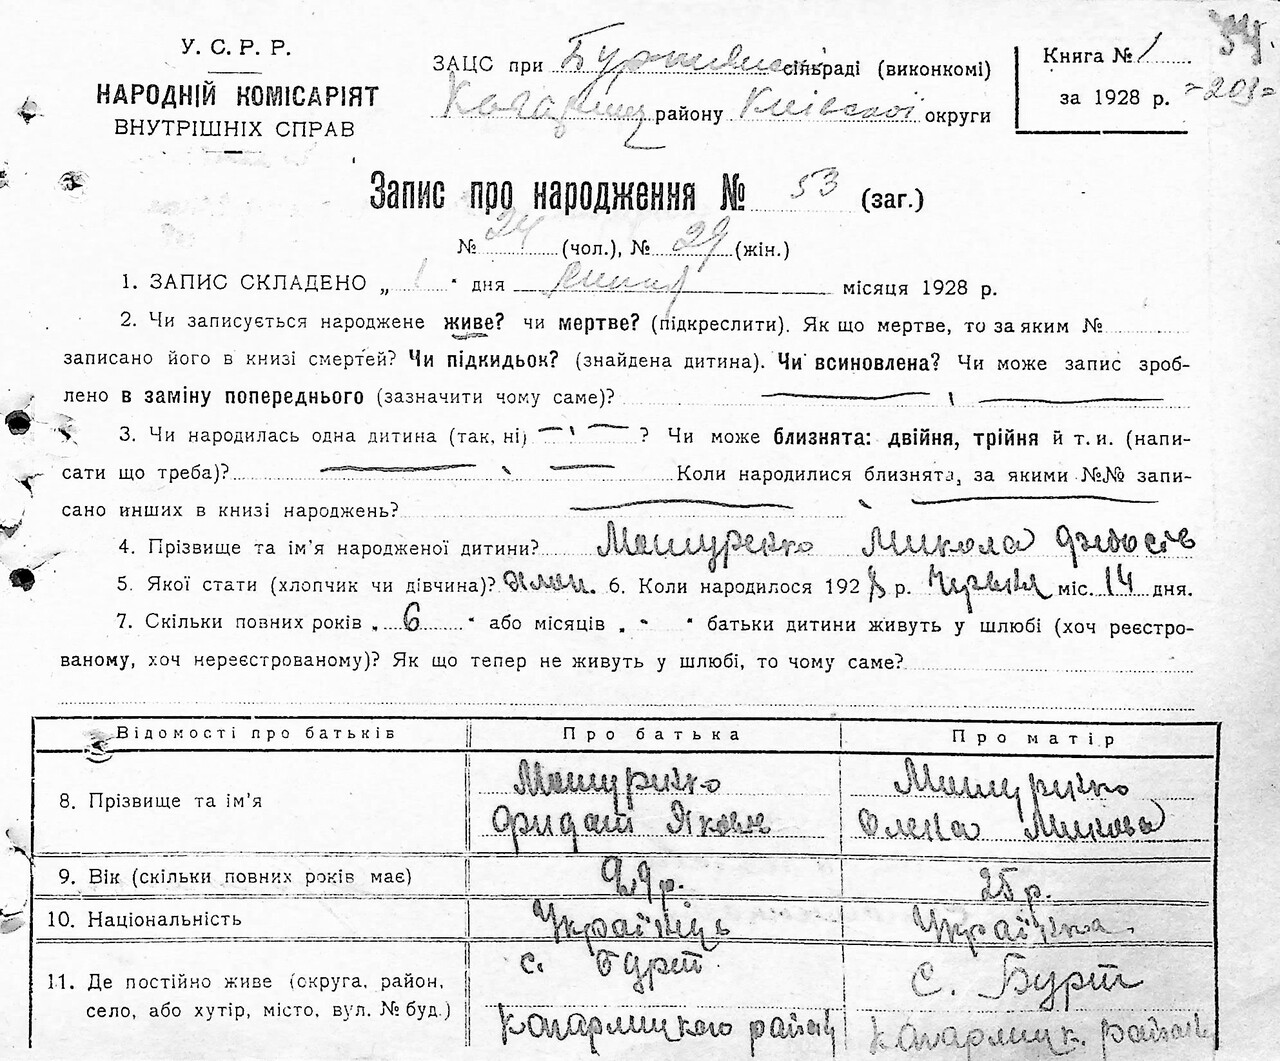 У. С. Р. Р.
НАРОДНІЙ КОМІСАРІЯТ
ВНУТРІШНІХ СПРАВ
ЗАЦС при сільраді (виконкомі)
району Київської округи
Книга № 1
за 1928 р.
Запис про народження № 53 (заг.)
№ 24 (чол.), № 29 (жін.)
1. ЗАПИС СКЛАДЕНО „ 1 " дня місяця 1928 р.
2. Чи записується народжене живе? чи мертве? (підкреслити). Як що мертве, то за яким №
записано його в книзі смертей? Чи підкидьок? (знайдена дитина). Чи всиновлена? Чи може запис зроб-
лено в заміну попереднього (зазначити чому саме)?
3. Чи народилась одна дитина (так, ні) ? Чи може близнята: двійня, трійня й т. и. (напи-
сати що треба)? Коли народилися близнята, за якими №№ запи-
сано инших в книзі народжень?
4. Прізвище та ім'я народженої дитини? Машуренко Микола
5. Якої стати (хлопчик чи дівчина)? 6. Коли народилось 1928 р. Червня міс. 14 дня.
7. Скільки повних років „ 6 " або місяців „ " батьки дитини живуть у шлюбі (хоч реєстро-
ваному, хоч нереєстрованому)? Як що тепер не живуть у шлюбі, то чому саме?
Відомості про батьків Про батька Про матір
8. Прізвище та ім'я
Яковл
Олена
9. Вік (скільки повних років має) 29 р. 25 р.
10. Національність Українць Українка.
11. Де постійно живе (округа, район,
село, або хутір, місто, вул. № буд.)
с. Бурти
с. Бурти
Кагарлицкого району
Кагарлицк. району